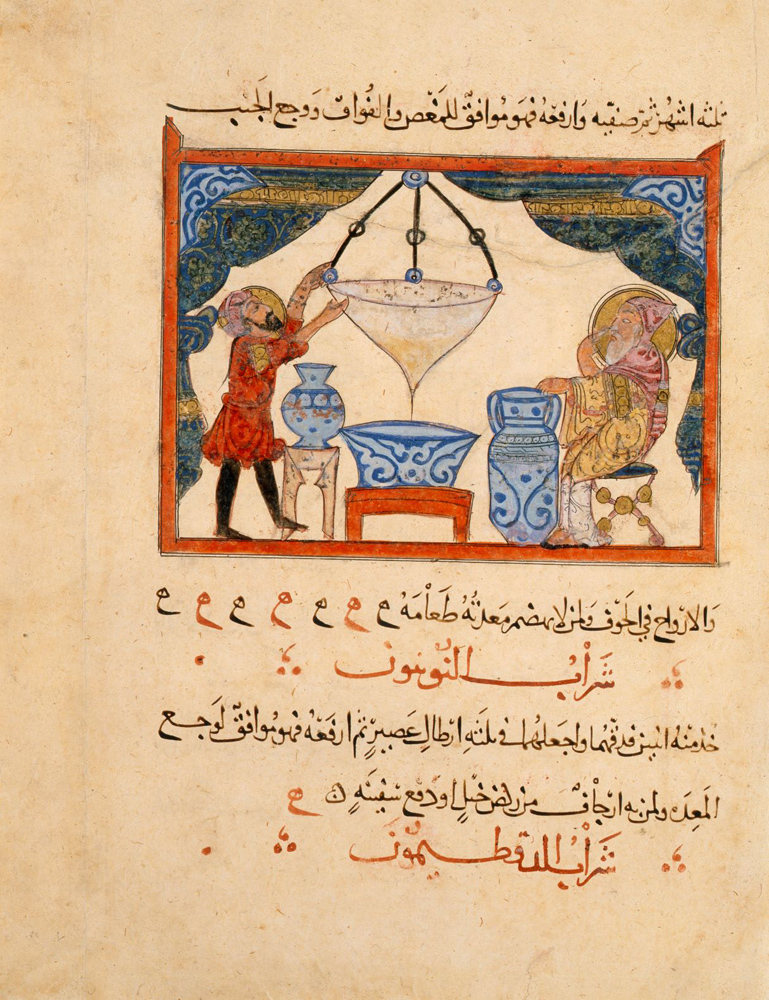 ثلثه اشهر ثم صفيه وارفعه فهو موافق للمغص والفواق ووجع الجنب
والارواح في الجوف ولمن لا يهضم معدته طعامه ح ح ح ح ح ح ح
شراب
خذ منه اثنين فدقهما واجعلهما في ثلثه ارطال عصير ثم ارفعه فهو موافق لوجع
المعده ولمن به ارجاف من ركض خيل او دفع سفينه ه ح
شراب